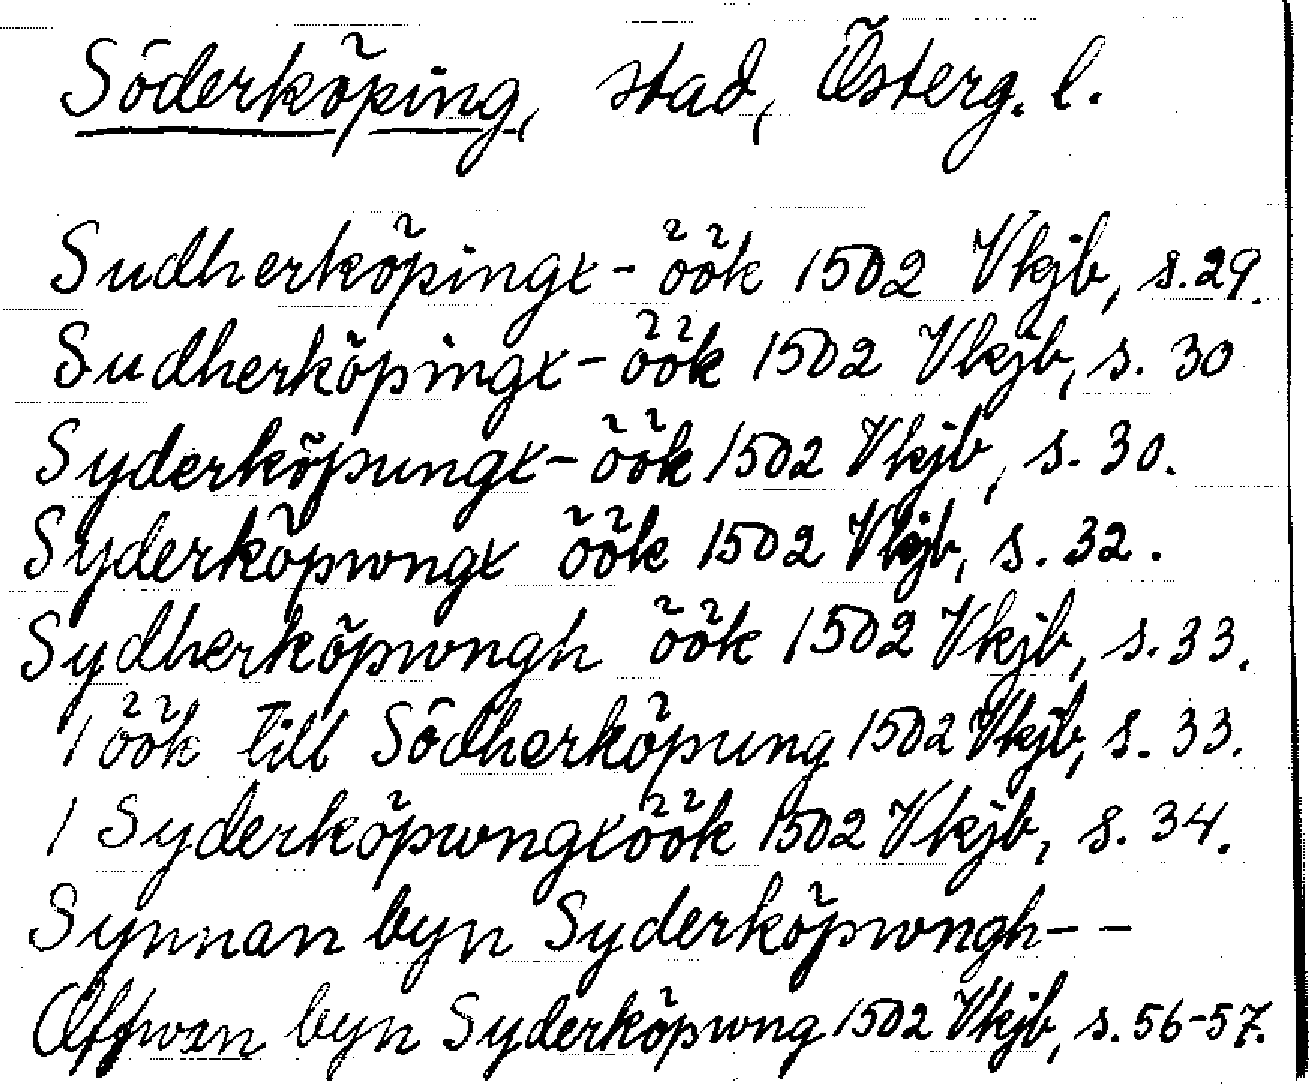 Söderköping, stad, Österg. l.
Sudherköpingx - öök 1502 Vkjb, s. 29.
Sudherköpingx - öök 1502 Vkjb, s. 30
Syderköpungx - öök 1502 Vkjb, s. 30.
Syderköpwngx öök 1502 Vkjb, s. 32.
Sydherköpwngh öök 1502 Vkjb, s. 33.
1 öök till Södherköpung 1502 Vkjb, s. 33.
1 Syderköpwngxöök 1502 Vkjb, s. 34.
Synnan byn Syderköpwngh - -
Offwan byn Syderköpwng 1502 Vkjb, s. 56-57.